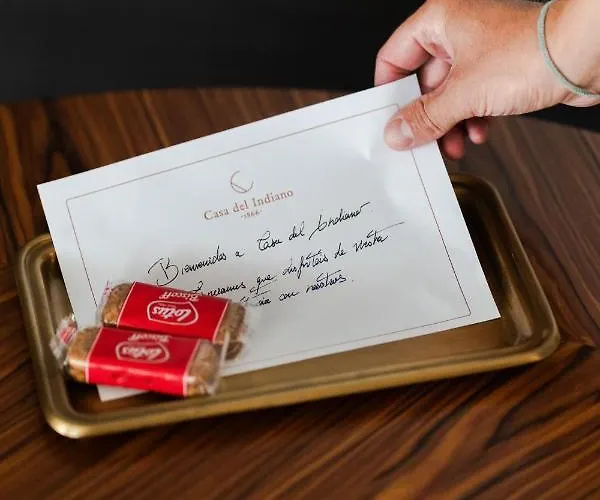 Casa del Indiano
·1866·
Bienvenidos a Casa del Indiano.
Esperamos que disfrutéis de vuestra
con nosotros.
Biscoff
Lotus
Biscoff
Lotus